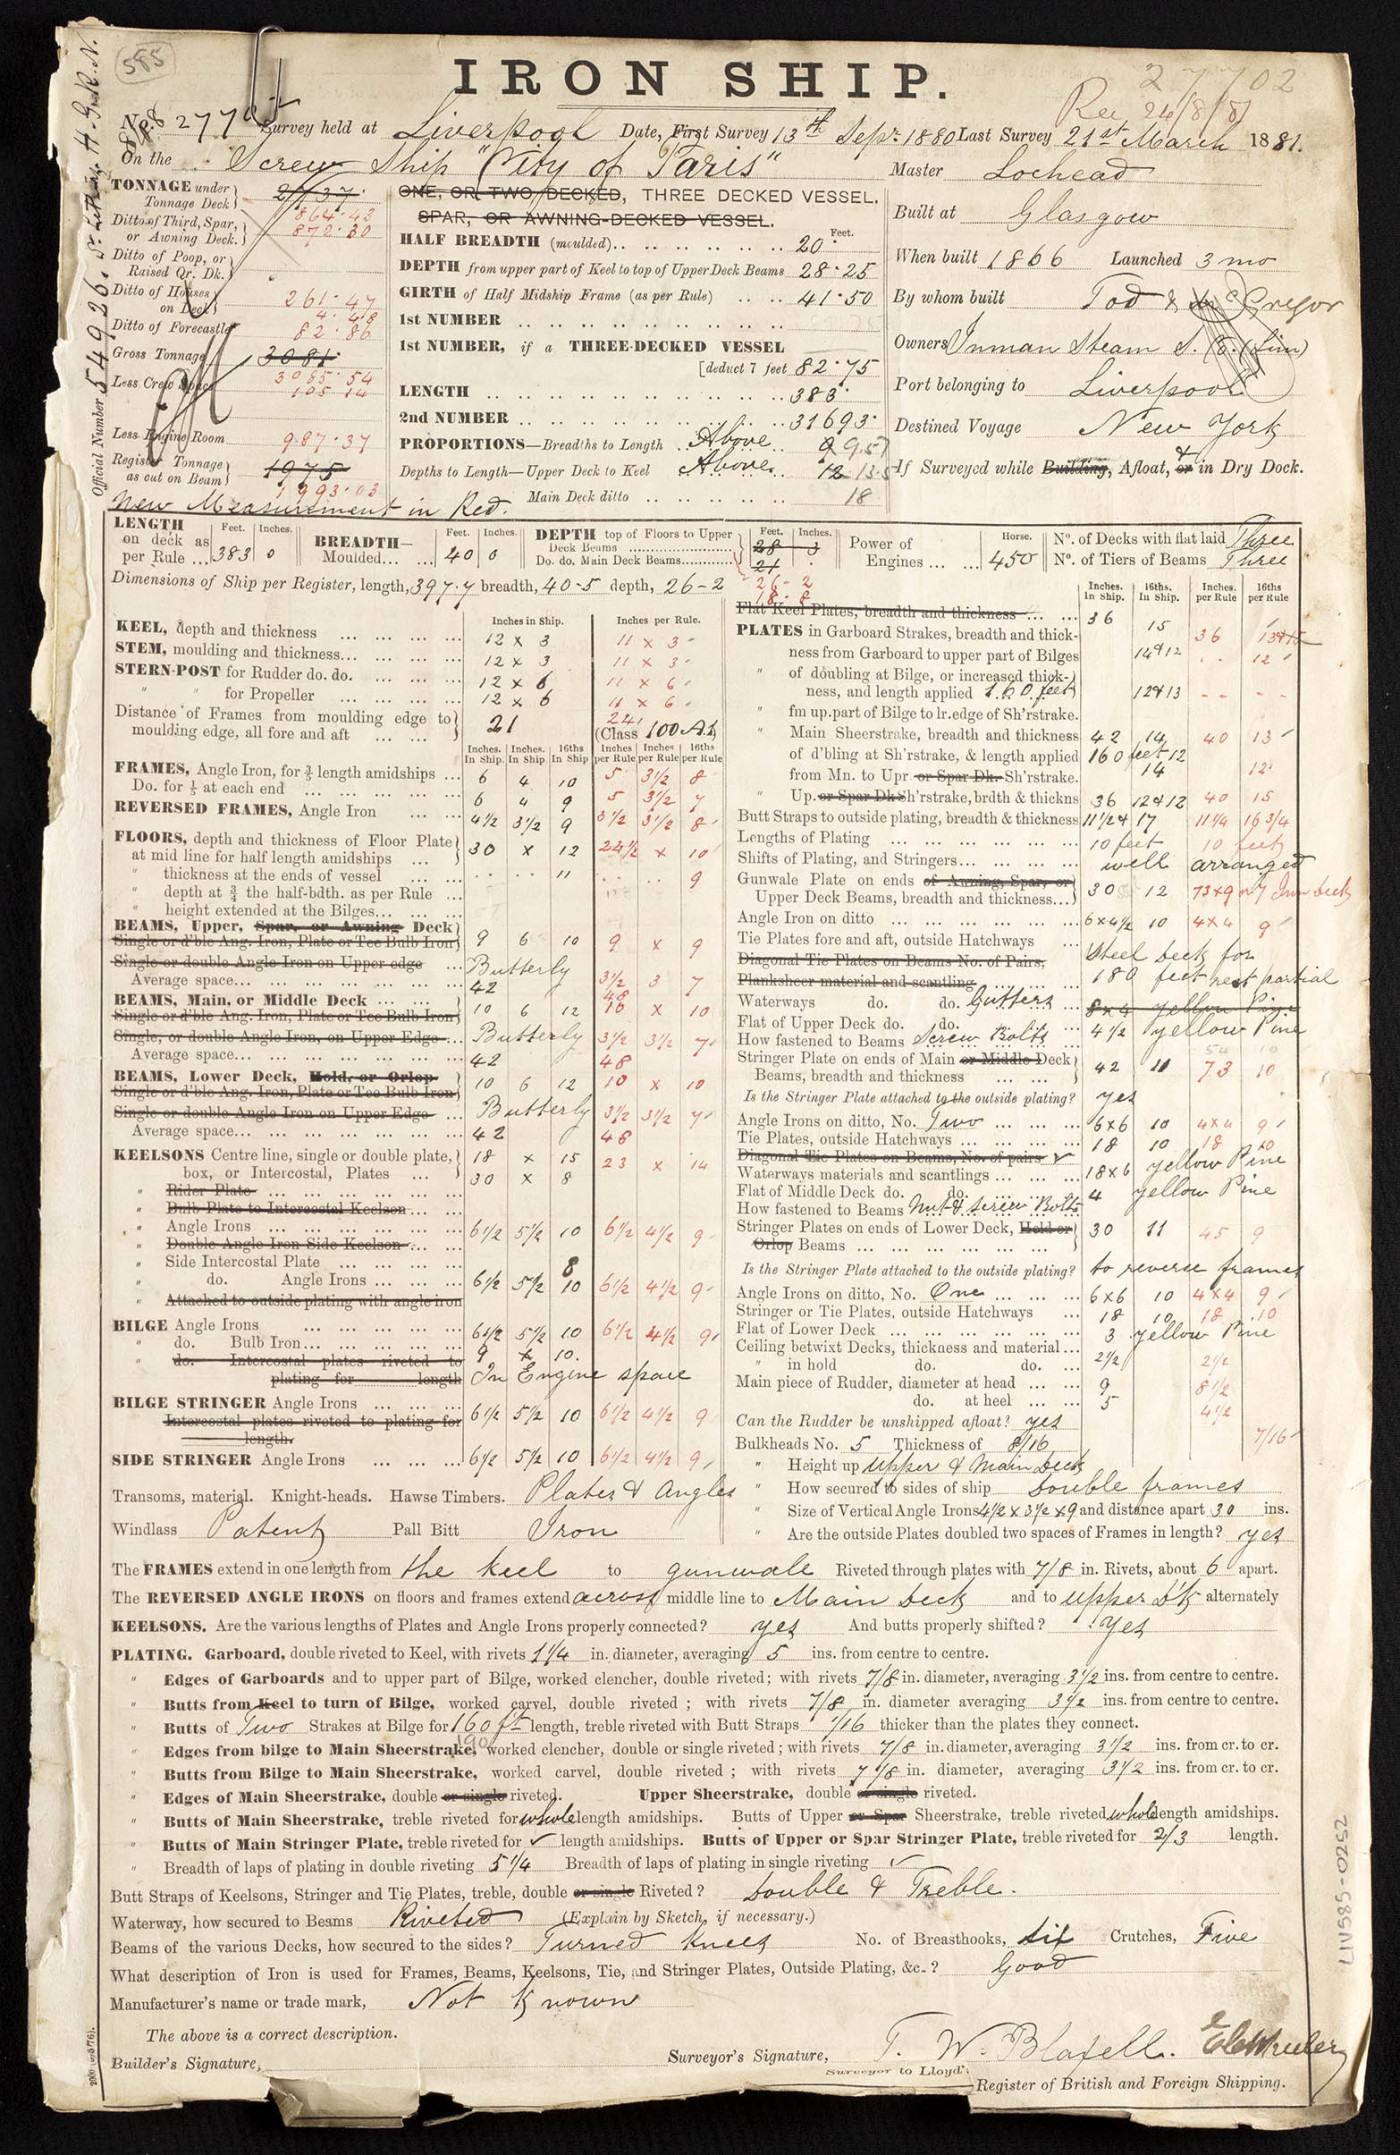 585
IRON SHIP.
27702
Rec 24/8/81
Survey held at Liverpool Date, First Survey 13th Sepr. 1880 Last Survey 21st March 1881.
On the Screw Ship "City of Paris" Master Lochead
TONNAGE under Tonnage Deck 2137.
864.43
Ditto of Third, Spar, or Awning Deck. 872.30
Ditto of Poop, or Raised Qr. Dk.
Ditto of Houses on Deck 261.47
4.48
Ditto of Forecastle 82.86
Gross Tonnage 3081.
3085.54
Less Crew Space 105.14
Less Engine Room 987.37
Register Tonnage as cut on Beam 1975
1993.03
New Measurement in Red.
Official Number 54926.
ONE, OR TWO DECKED, THREE DECKED VESSEL.
SPAR, OR AWNING-DECKED VESSEL.
Feet.
HALF BREADTH (moulded) 20.
DEPTH from upper part of Keel to top of Upper Deck Beams 28.25
GIRTH of Half Midship Frame (as per Rule) 41.50
1st NUMBER
1st NUMBER, if a THREE-DECKED VESSEL
[deduct 7 feet 82.75
LENGTH 383.
2nd NUMBER 31693.
PROPORTIONS—Breadths to Length Above 9 9.57
Depths to Length—Upper Deck to Keel Above 12 13.5
Main Deck ditto 18
Built at Glasgow
When built 1866 Launched 3 mo
By whom built Tod & McGregor
Owners Inman Steam S. Co. (Lim)
Port belonging to Liverpool
Destined Voyage New York
If Surveyed while Building, Afloat, & or in Dry Dock.
LENGTH on deck as per Rule Feet. 383 Inches. 0
BREADTH—Moulded Feet. 40 Inches. 0
DEPTH top of Floors to Upper Deck Beams Feet. 28 Inches. 3
Do. do. Main Deck Beams 21
26-2
18.8
Power of Engines Horse. 450
No. of Decks with flat laid Three
No. of Tiers of Beams Three
Dimensions of Ship per Register, length, 397.7 breadth, 40-5 depth, 26-2
Inches in Ship. Inches per Rule.
KEEL, depth and thickness 12 x 3 11 x 3
STEM, moulding and thickness 12 x 3 11 x 3
STERN-POST for Rudder do. do. 12 x 6 11 x 6
" " for Propeller 12 x 6 11 x 6
Distance of Frames from moulding edge to moulding edge, all fore and aft 21 24 (Class 100 A.1.
Inches. In Ship. Inches. In Ship 16ths In Ship Inches per Rule Inches per Rule 16ths per Rule
FRAMES, Angle Iron, for 3/5 length amidships 6 4 10 5 3½ 8
Do. for 1/5 at each end 6 4 9 5 3½ 7
REVERSED FRAMES, Angle Iron 4½ 3½ 9 3½ 3½ 8
FLOORS, depth and thickness of Floor Plate at mid line for half length amidships 30 x 12 24½ x 10
" thickness at the ends of vessel 11 9
" depth at ¾ the half-bdth. as per Rule
" height extended at the Bilges
BEAMS, Upper, Spar, or Awning Deck
Single or d'ble Ang. Iron, Plate or Tee Bulb Iron 9 6 10 9 x 9
Single or double Angle Iron on Upper edge Butterly 3½ 3 7
Average space 42 48
BEAMS, Main, or Middle Deck
Single or d'ble Ang. Iron, Plate or Tee Bulb Iron 10 6 12 10 x 10
Single, or double Angle Iron, on Upper Edge Butterly 3½ 3½ 7
Average space 42 48
BEAMS, Lower Deck, Hold, or Orlop
Single or d'ble Ang. Iron, Plate or Tee Bulb Iron 10 6 12 10 x 10
Single or double Angle Iron on Upper Edge Butterly 3½ 3½ 7
Average space 42 48
KEELSONS Centre line, single or double plate, box, or Intercostal, Plates 18 x 15 23 x 14
30 x 8
" Rider Plate
" Bulb Plate to Intercostal Keelson
" Angle Irons 6½ 5½ 10 6½ 4½ 9
" Double Angle Iron Side Keelson
" Side Intercostal Plate 8
" do. Angle Irons 6½ 5½ 10 6½ 4½ 9
" Attached to outside plating with angle iron
BILGE Angle Irons 6½ 5½ 10 6½ 4½ 9
" do. Bulb Iron 9 x 10.
" do. Intercostal plates riveted to plating for length In Engine space
BILGE STRINGER Angle Irons 6½ 5½ 10 6½ 4½ 9
Intercostal plates riveted to plating for length.
SIDE STRINGER Angle Irons 6½ 5½ 10 6½ 4½ 9
Transoms, material. Knight-heads. Hawse Timbers. Plates & Angles
Windlass Patent Pall Bitt Iron
Inches. In Ship. 16ths. In Ship. Inches per Rule 16ths per Rule
Flat Keel Plates, breadth and thickness
PLATES in Garboard Strakes, breadth and thickness 36 15 36
from Garboard to upper part of Bilges 14&12 12
" of doubling at Bilge, or increased thickness, and length applied feet 12&13
" fm up. part of Bilge to lr. edge of Sh'rstrake.
" Main Sheerstrake, breadth and thickness 42 14 40 13
of d'bling at Sh'rstrake, & length applied 160 feet 12
from Mn. to Upr. or Spar Dk. Sh'rstrake. 14 12
" Up. or Spar Dk Sh'rstrake, brdth & thickns 36 12&12 40 15
Butt Straps to outside plating, breadth & thickness 11½ & 17 11¼ 16¾
Lengths of Plating 10 feet 10 feet
Shifts of Plating, and Stringers well arranged
Gunwale Plate on ends of Awning, Spar, or Upper Deck Beams, breadth and thickness 30 12 73x9 or 7 Iron deck
Angle Iron on ditto 6 x 4½ 10 4x4 9
Tie Plates fore and aft, outside Hatchways Steel deck for
Diagonal Tie Plates on Beams No. of Pairs, 180 feet rest partial
Planksheer material and scantling
Waterways do. do. Gutters 8x4 yellow Pine
Flat of Upper Deck do. do. 4½ yellow Pine
How fastened to Beams Screw Bolts
Stringer Plate on ends of Main or Middle Deck Beams, breadth and thickness 42 11 73 10
Is the Stringer Plate attached to the outside plating? yes
Angle Irons on ditto, No. Two 6x6 10 4x4 9
Tie Plates, outside Hatchways 18 10 18 10
Diagonal Tie Plates on Beams, No. of pairs
Waterways materials and scantlings 18x6 yellow Pine
Flat of Middle Deck do. do. 4 yellow Pine
How fastened to Beams Nut & screw Bolts
Stringer Plates on ends of Lower Deck, Hold or Orlop Beams 30 11 45 9
Is the Stringer Plate attached to the outside plating? to reverse frames
Angle Irons on ditto, No. One 6x6 10 4x4 9
Stringer or Tie Plates, outside Hatchways 18 10 18 10
Flat of Lower Deck 3 yellow Pine
Ceiling betwixt Decks, thickness and material 2½
" in hold do. do. 2½
Main piece of Rudder, diameter at head 9 8½
do. at heel 5 4½
Can the Rudder be unshipped afloat? yes
Bulkheads No. 5 Thickness of 8/16 7/16
" Height up upper & Main Deck
" How secured to sides of ship Double frames
" Size of Vertical Angle Irons 4½ x 3½ x 9 and distance apart 30 ins.
" Are the outside Plates doubled two spaces of Frames in length? yes
The FRAMES extend in one length from the keel to gunwale Riveted through plates with 7/8 in. Rivets, about 6 apart.
The REVERSED ANGLE IRONS on floors and frames extend across middle line to Main Deck and to upper D'k alternately
KEELSONS. Are the various lengths of Plates and Angle Irons properly connected? yes And butts properly shifted? Yes
PLATING. Garboard, double riveted to Keel, with rivets 1¼ in. diameter, averaging 5 ins. from centre to centre.
" Edges of Garboards and to upper part of Bilge, worked clencher, double riveted; with rivets 7/8 in. diameter, averaging 3½ ins. from centre to centre.
" Butts from Keel to turn of Bilge, worked carvel, double riveted; with rivets 7/8 in. diameter averaging 3½ ins. from centre to centre.
" Butts of Two Strakes at Bilge for 160 ft length, treble riveted with Butt Straps 1/16 thicker than the plates they connect.
" Edges from bilge to Main Sheerstrake, worked clencher, double or single riveted; with rivets 7/8 in. diameter, averaging 3½ ins. from cr. to cr.
" Butts from Bilge to Main Sheerstrake, worked carvel, double riveted; with rivets 7/8 in. diameter, averaging 3½ ins. from cr. to cr.
" Edges of Main Sheerstrake, double or single riveted. Upper Sheerstrake, double or single riveted.
" Butts of Main Sheerstrake, treble riveted for whole length amidships. Butts of Upper or Spar Sheerstrake, treble riveted whole length amidships.
" Butts of Main Stringer Plate, treble riveted for ✓ length amidships. Butts of Upper or Spar Stringer Plate, treble riveted for 2/3 length.
" Breadth of laps of plating in double riveting 5¼ Breadth of laps of plating in single riveting ✓
Butt Straps of Keelsons, Stringer and Tie Plates, treble, double or single Riveted? Double & Treble.
Waterway, how secured to Beams Riveted (Explain by Sketch, if necessary.)
Beams of the various Decks, how secured to the sides? Turned Knees No. of Breasthooks, Six Crutches, Five
What description of Iron is used for Frames, Beams, Keelsons, Tie, and Stringer Plates, Outside Plating, &c.? Good
Manufacturer's name or trade mark, Not Known
The above is a correct description.
Builder's Signature, Surveyor's Signature, T. W.
Surveyor to Lloyd's
Register of British and Foreign Shipping.
LIV585-0252